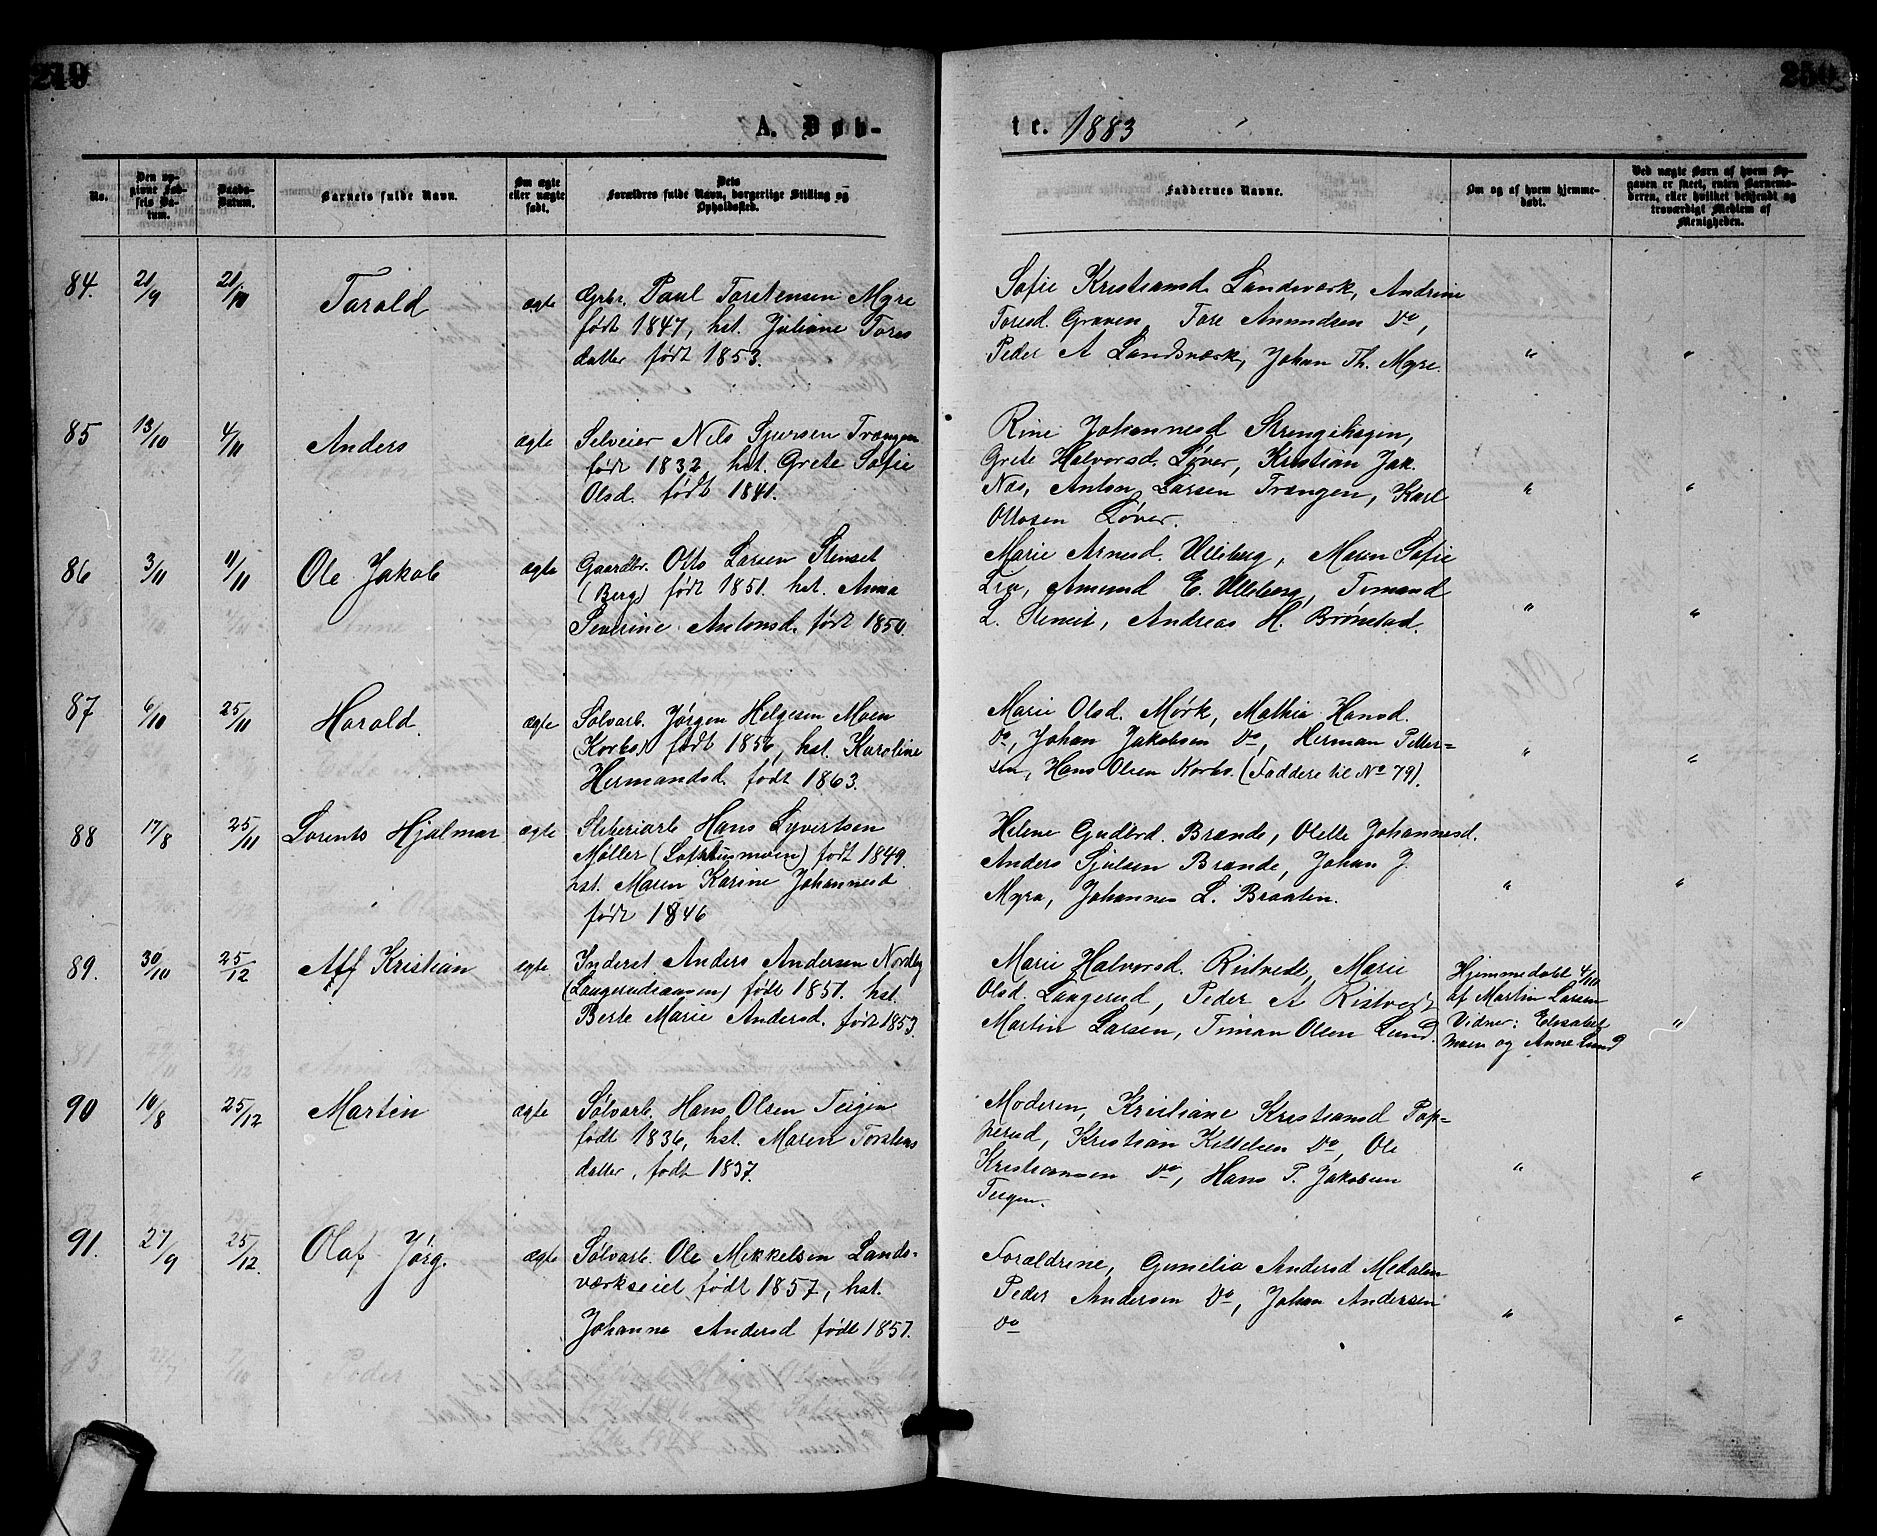 249
250
A. Døb-
te. 1883
No.
Den op-
givne Fød-
sels Da-
tum.
Daabs-
Datum.
Barnets fulde Navn.
Om ægte
eller uægte
født.
Dets
Forældres fulde Navn, borgerlige Stilling og
Opholdssted.
Faddernes Navne.
Om og af hvem hjemme-
døbt.
Ved uægte Børn af hvem Op-
gaven er skeet, enten Barnemo-
deren, eller hvilket bekjendt og
troværdigt Medlem af
Menigheden.
84. 21/9 21/10 Tarald ægte Grbr. Paul Torstensen Myre
født 1847, hst. Juliane Tores
datter født 1853.
Sofie Kristiansd. Landsværk, Andrine
Toresd. Graven, Tore Amundsen Do,
Peder A Landsværk, Johan Th. Myre. " "
85 13/10 4/11 Anders ægte Selveier Nils Sjursen Trængen
født 1832, hst. Grete Sofie
Olsd. født 1841.
Rine Johannesd Strengehagen,
Grete Halvorsd. Løver, Kristian Jak.
Næs, Anton Larsen Trængen, Karl " "
Ottosen Løver.
86 3/11 11/11 Ole Jakob ægte Gaardbr. Otto Larsen Stenset
(Berg) født 1851. hst. Anna
Severine Antonsd. født 1850.
Marie Arnesd. Ulleberg, Maren Sofie
Lia, Amund E. Ulleberg, Tomand
L. Stenset, Andreas H. Brønstad. " "
87 6/10 25/11 Harald. ægte Sølvarb. Jørgen Helgesen Moen
(Korbs.) født 1856, hst. Karoline
Hermandsd. født 1863.
Marie Olsd. Mørk, Mathia Hansd.
Do, Johan Jakobsen Do, Herman Petter-
sen, Hans Olsen Korbs. (Faddere til No 79). " "
88 17/8 25/11 Lorents Hjalmar ægte Sliberiarb Hans Syvertsen
Møller (Lofthusmoen) født 1849.
hst. Maren Karine Johannesd
født 1846
Helene Gudbrd. Brænde, Olette Johannesd.
Anders Sjulsen Brænde, Johan J.
Myra, Johannes L. Braaten. " "
89. 30/10 25/12 Aff Kristian ægte Inderst. Anders Andersen Nordby
(Langerudsansen) født 1851. hst.
Berte Marie Andersd. født 1853.
Marie Halvorsd. Ristvedt, Marie
Olsd. Langerud, Peder A Ristvedt
Martin Larsen, Timan Olsen Lund.
Hjemmedøbt 4/11
af Martin Larsen
Vidner: Elisabet
Moen og Anne Lund "
90 10/8 25/12 Martin ægte Sølvarb. Hans Olsen Teigen
født 1836, hst. Maren Torstens
datter, født 1837.
Moderen, Kristiane Kristiansd Pop-
perud, Kristian Kittelsen Do, Ole
Kristiansen Do, Hans P. Jakobsen " "
Teigen.
91. 27/9 25/12. Olaf Jørg. ægte Sølvarb. Ole Mikkelsen Lands-
værkseiet født 1857, hst.
Johanne Andersd født 1857.
Forældrene, Gunelia Andersd Medalen
Peder Andersen Do, Johan Andersen
Do " "